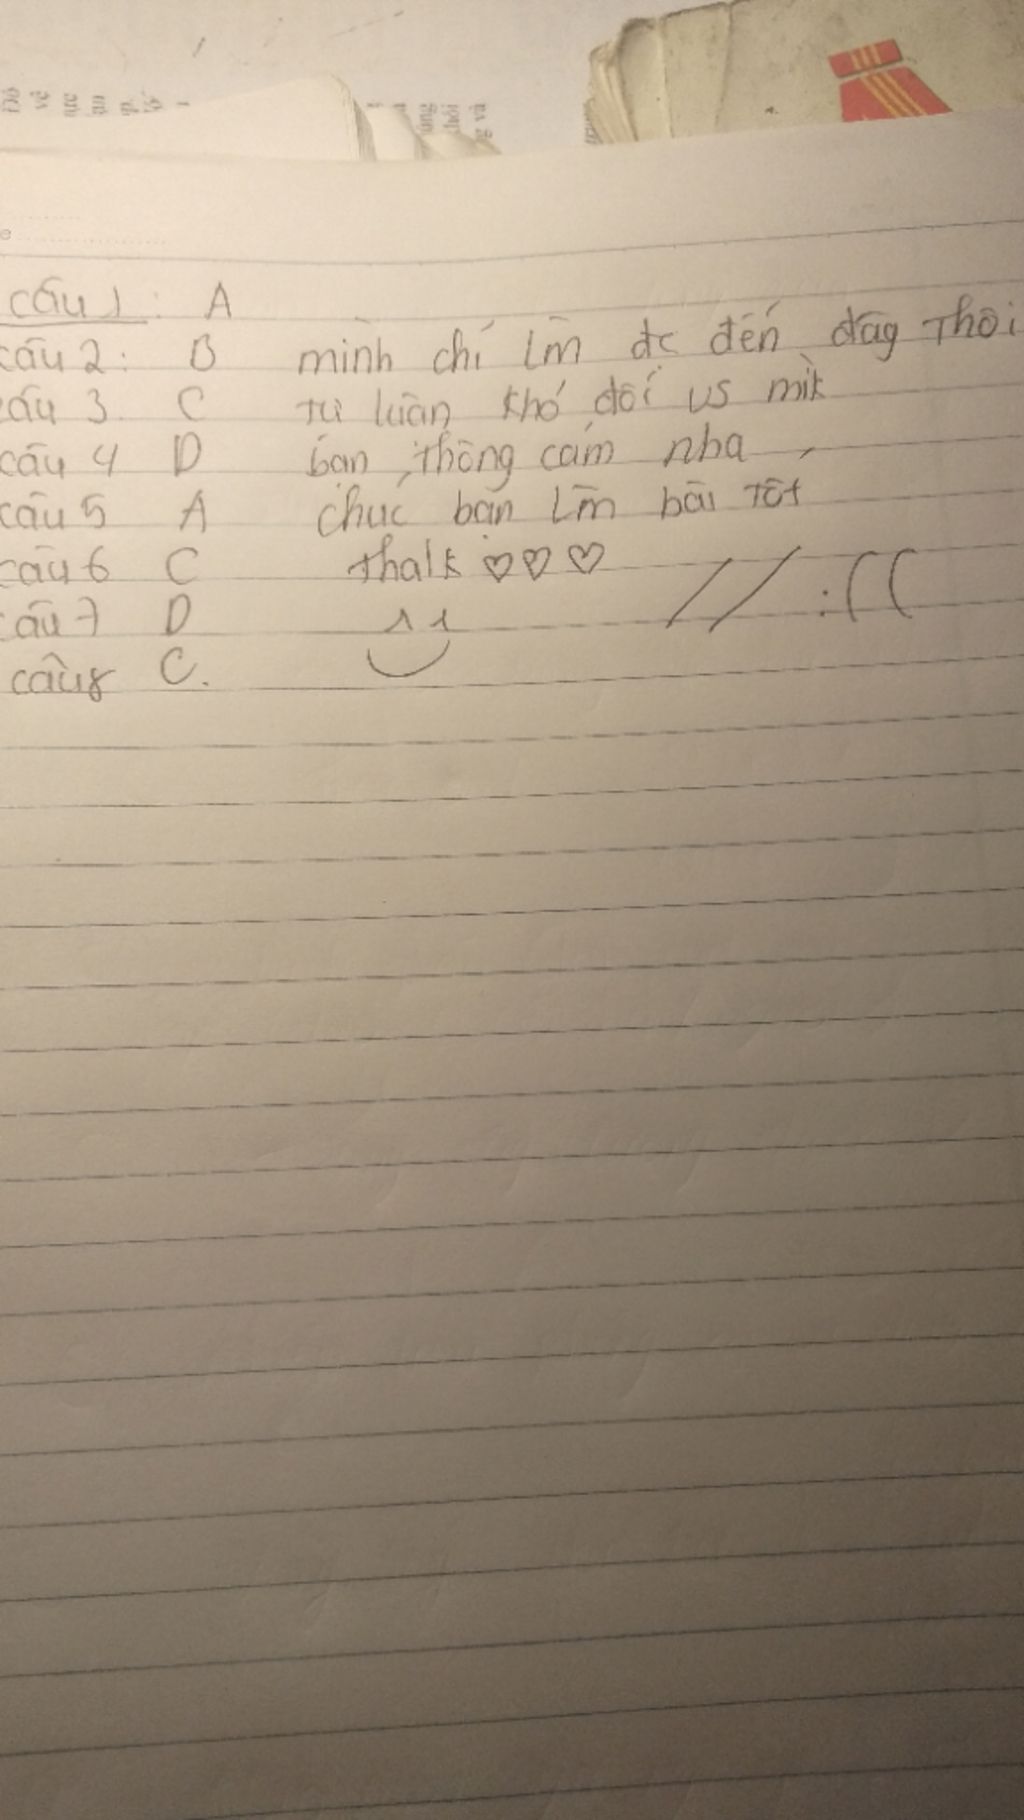 câu 1 : A
câu 2 : B mình chỉ lm đc đến đây thôi
câu 3. C tự luận khó đối vs mik
câu 4 D bạn thông cảm nha
câu 5 A chúc bạn lm bài tốt
câu 6 C thalk ♡♡♡
câu 7 D // :((
câu 8 C.